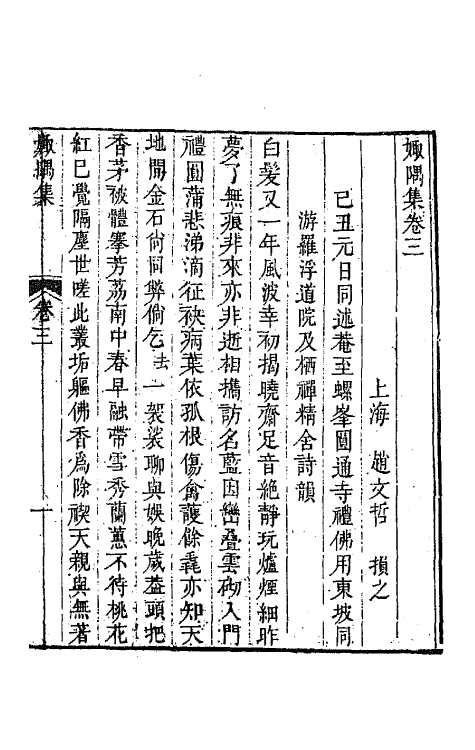 娵隅集卷三
上海　趙文哲　損之
己丑元日同述菴至螺峯圓通寺禮佛用東坡同
游羅浮道院及栖禪精舍詩韻
白髮又一年風波幸初揭曉齋足音絶靜玩爐煙細昨
夢了無痕非來亦非逝相攜訪名藍因巒疊雲砌入門
禮圓蒲悲涕滴征袂病葉依孤根傷禽護餘毳亦知天
地閒金石尙同弊偷乞去一袈裟聊與娛晚歲葢頭把
香茅被體搴芳荔南中春早融帶雪秀蘭蕙不待桃花
紅已覺隔塵世嗟此叢垢軀佛香爲除禊天親與無著
娵隅集
卷三
一